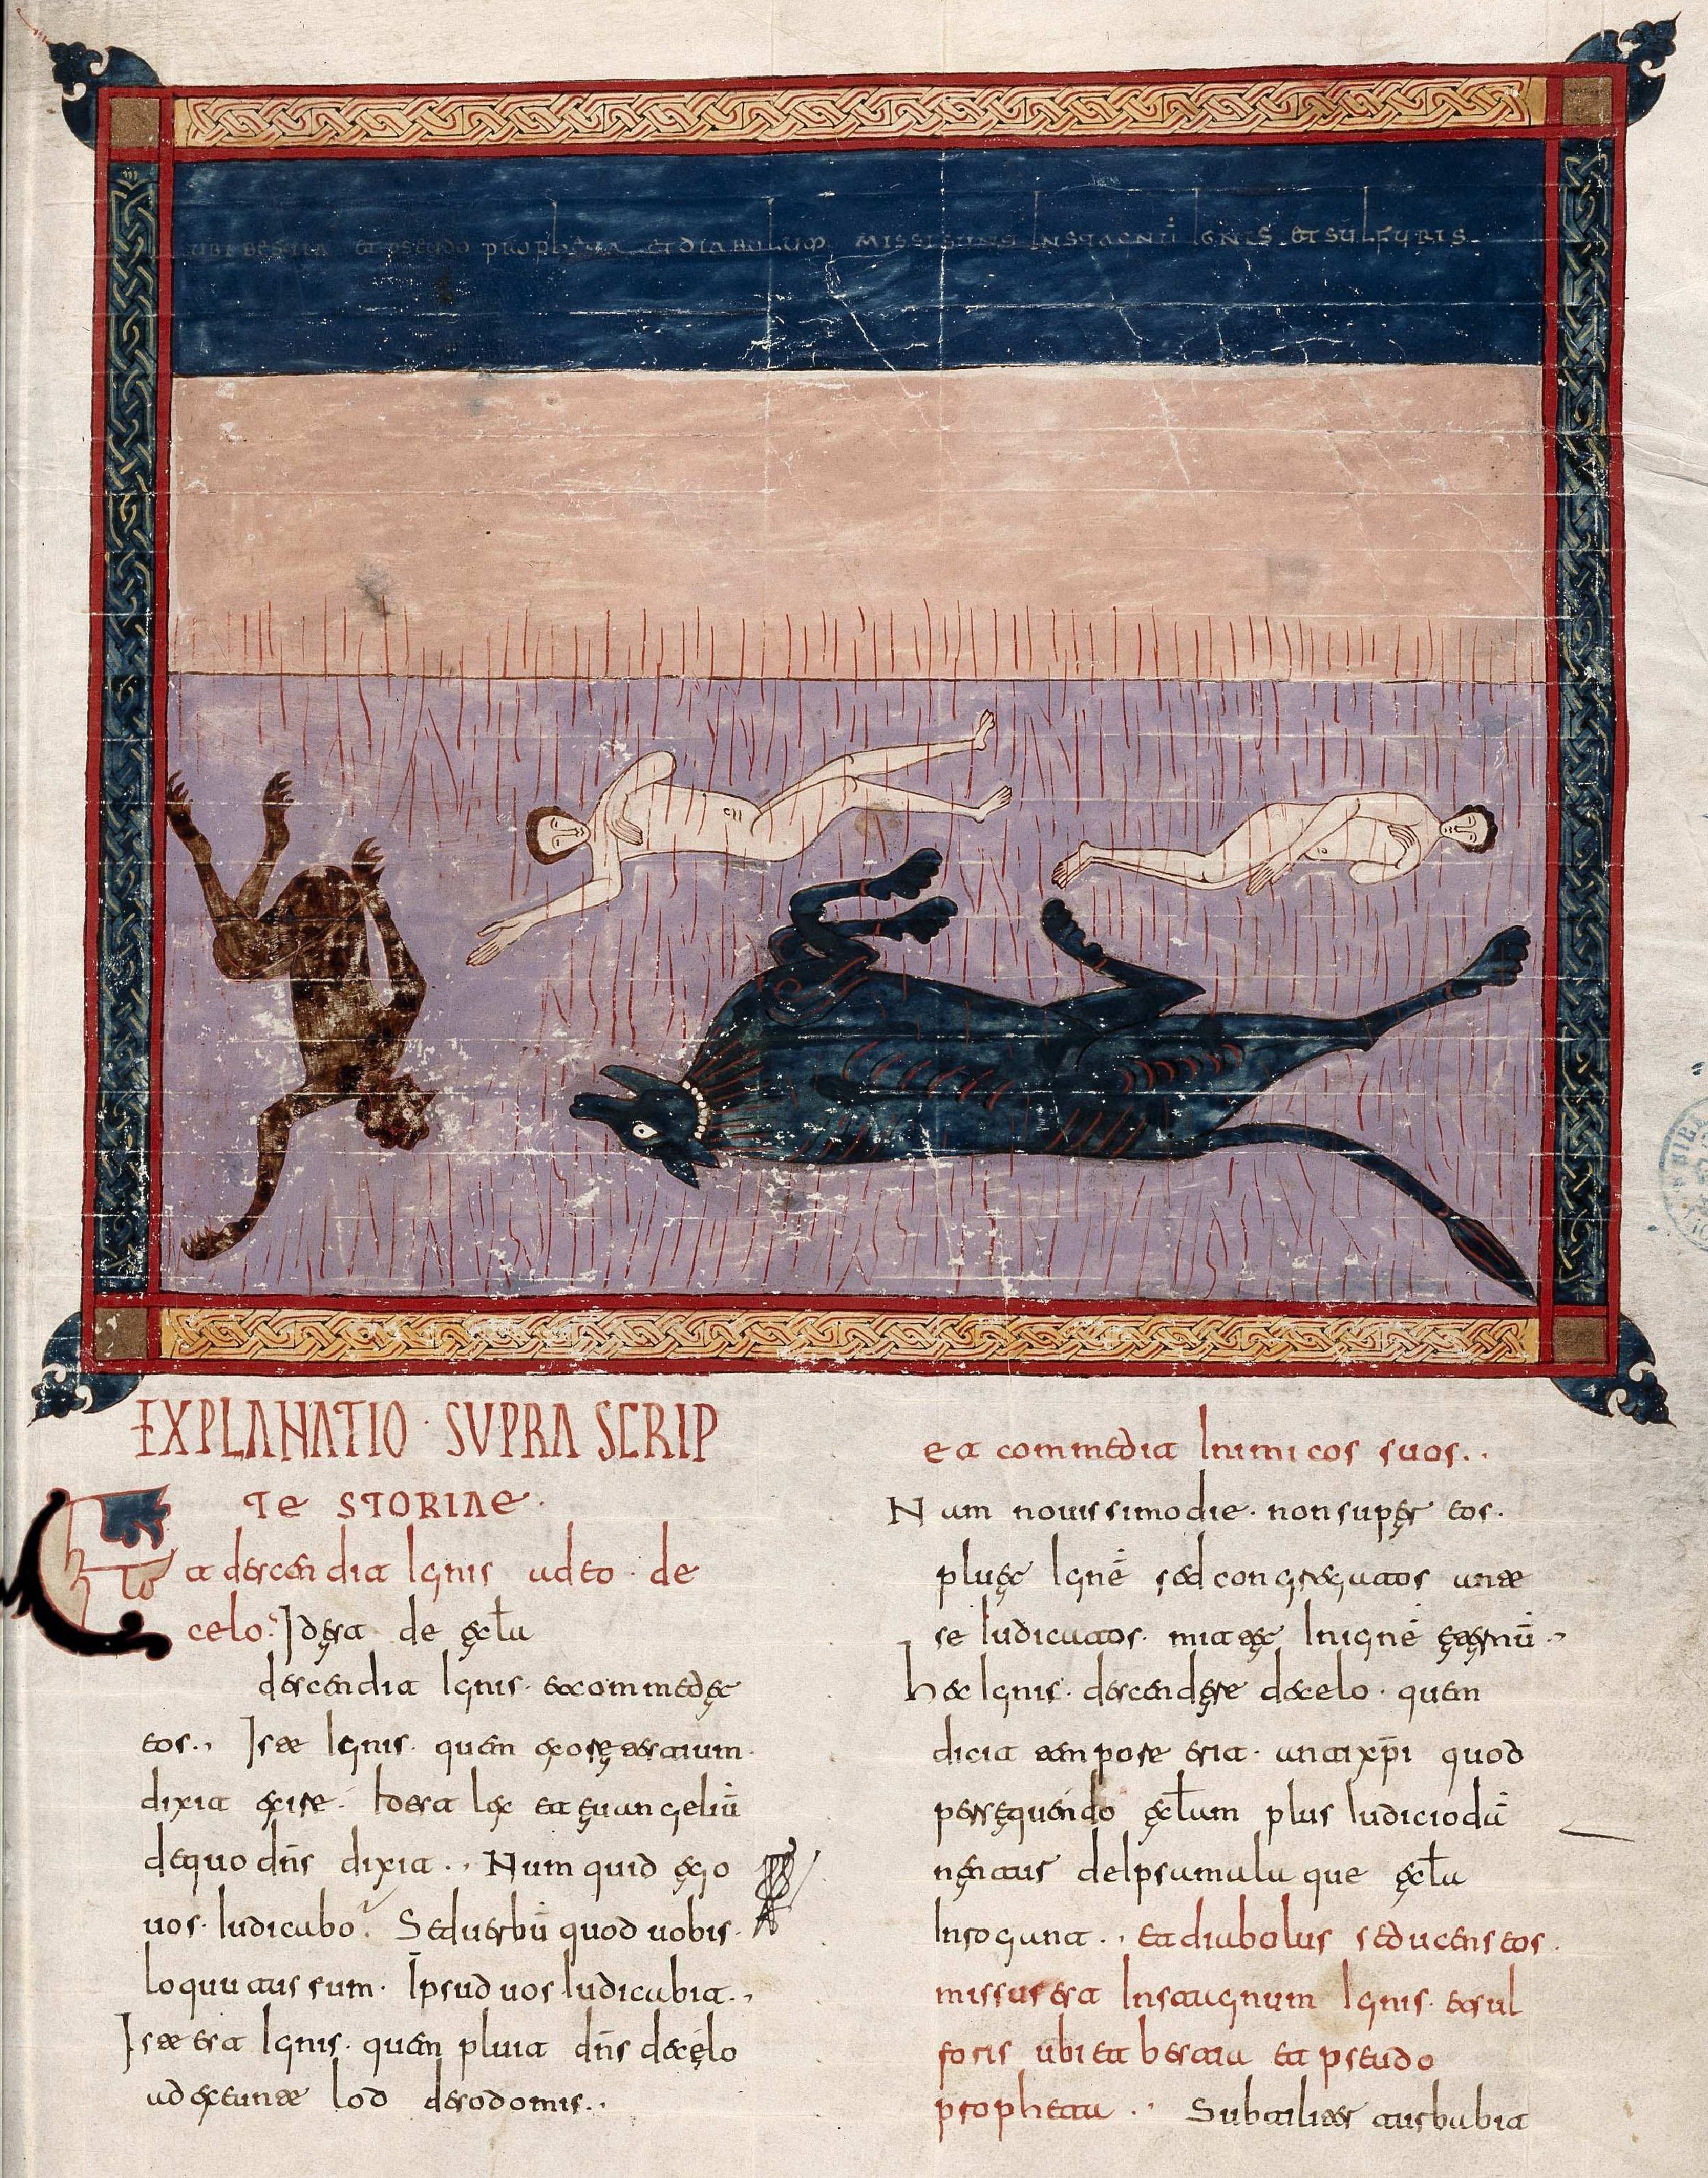 UBI BESTIA ET PSEUDO PROPHETA ET DIABOLUM MISSI SUNT IN STAGNŪ IGNIS ET SULFURIS
EXPLANATIO · SVPRA SCRIP
TE STORIAE ·
Et descendit Ignis a deo · de
celo : Id est de ęcl̄a
descendit Ignis · et commedęt
eos ·, Iste Ignis · quem ex ore testium ·
dixit exire · Id est lex et euangeliū
de quo dn̄s dixit ·, Num quid ego
uos · Iudicabo? Sed uerbū quod uobis ·
loquutus sum · Ipsud uos Iudicabit ·,
Iste est Ignis · quem pluit dn̄s de celo
ad exeunte lod de sodomis ·,
et commedit Inimicos suos ·,
Nam nouissimo die · non super eos ·
pluet Ignē sed congregatos ante
se Iudicatos · mittet In ignē eternū ·,
hec Ignis · descendere de celo · quem
dicit tempore est · anti xp̄i quod
persequendo ęcl̄am plus Iudicio dā
nentus de Ipsa mala que ęcl̄a
Inrogant ·, et diabolus seducens eos ·
missus est In stagnum Ignis · et sul
foris ubi et bestia et pseudo
propheta ·,